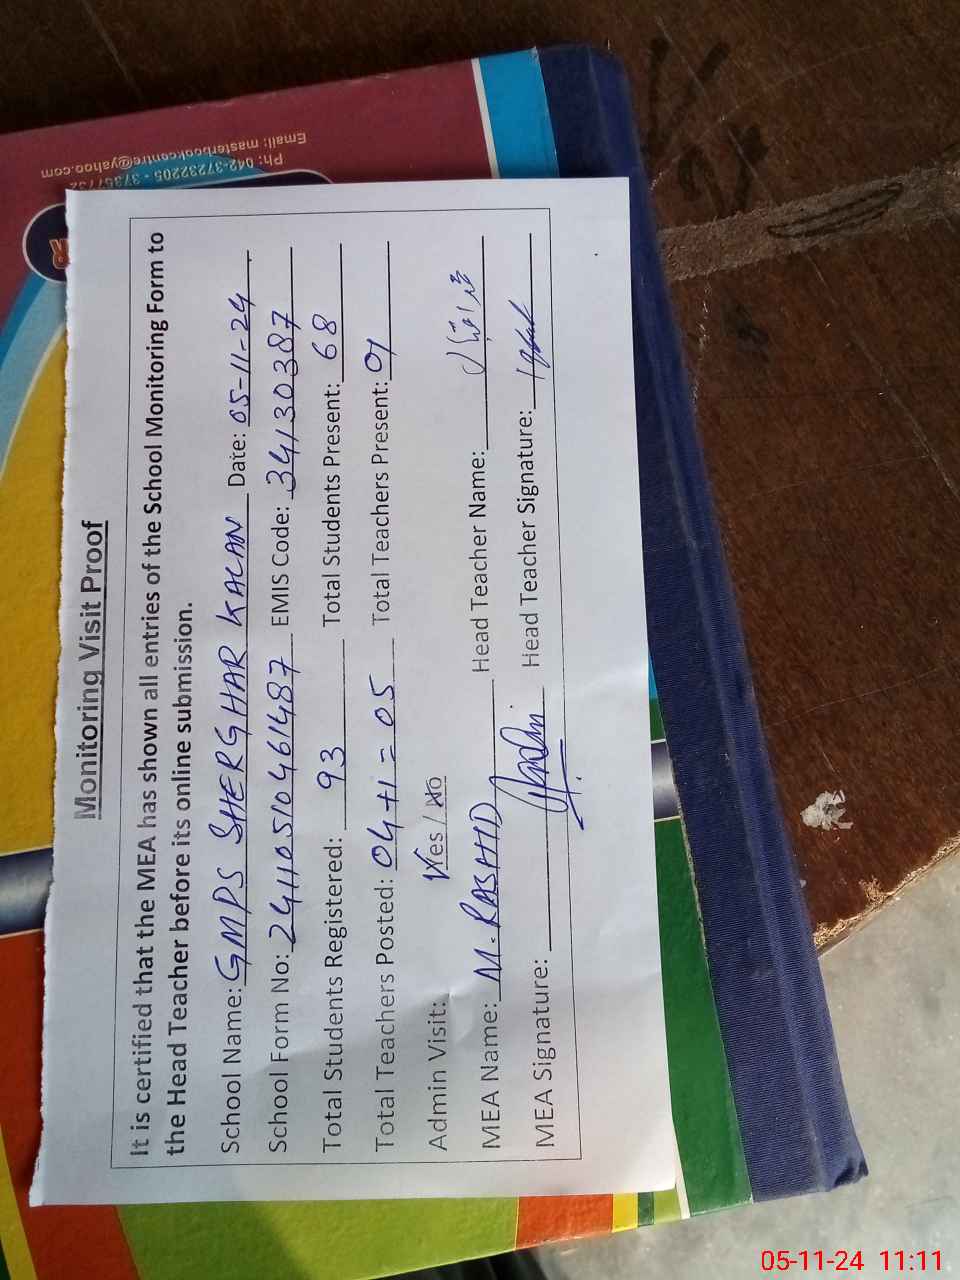 Email: masterbookcentre@yahoo.com
Ph: 042-37232205 - 37357732
Monitoring Visit Proof
It is certified that the MEA has shown all entries of the School Monitoring Form to
the Head Teacher before its online submission.
School Name: GMPS SHERGHAR KALAN Date: 05-11-24
School Form No: 24110510461487 EMIS Code: 34130387
Total Students Registered: 93 Total Students Present: 68
Total Teachers Posted: 04+1=05 Total Teachers Present:
Admin Visit: Yes / No
MEA Name: M. RASHID Head Teacher Name:
MEA Signature: Head Teacher Signature:
05-11-24 11:11